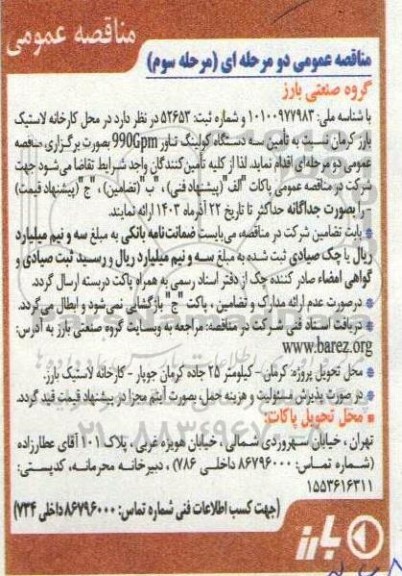 مناقصه عمومی
مناقصه عمومی دو مرحله ای (مرحله سوم)
گروه صنعتی بارز
با شناسه ملی: ۱۰۱۰۰۹۷۷۹۸۳ و شماره ثبت: ۵۲۶۵۳ در نظر دارد در محل کارخانه لاستیک
بارز کرمان نسبت به تأمین سه دستگاه کولینگ تاور 990Gpm بصورت برگزاری مناقصه
عمومی دو مرحله‌ای اقدام نماید. لذا از کلیه تأمین کنندگان واجد شرایط تقاضا می‌شود جهت
شرکت در مناقصه عمومی پاکات "الف" (پیشنهاد فنی) ، "ب" (تضامین) ، "ج" (پیشنهاد قیمت)
را بصورت جداگانه حداکثر تا تاریخ ۲۲ آذرماه ۱۴۰۳ ارائه نمایند.
بابت تضامین شرکت در مناقصه، می‌بایست ضمانت‌نامه بانکی به مبلغ سه و نیم میلیارد
ریال یا چک صیادی ثبت شده به مبلغ سه و نیم میلیارد ریال و رسید ثبت صیادی و
گواهی امضاء صادر کننده چک از دفتر اسناد رسمی به همراه پاکت دربسته ارسال گردد.
درصورت عدم ارائه مدارک و تضامین ، پاکت "ج" بازگشایی نمی‌شود و ابطال می‌گردد.
دریافت اسناد فنی شرکت در مناقصه: مراجعه به وبسایت گروه صنعتی بارز به آدرس:
www.barez.org
محل تحویل پروژه: کرمان - کیلومتر ۲۵ جاده کرمان جوپار - کارخانه لاستیک بارز.
در صورت پذیرش مسئولیت و هزینه حمل، بصورت آیتم مجزا در پیشنهاد قیمت قید گردد.
محل تحویل پاکات:
تهران ، خیابان سهروردی شمالی ، خیابان هویزه غربی ، پلاک ۱۰۱ آقای عطارزاده
(شماره تماس: ۸۶۷۹۶۰۰۰ داخلی ۷۸۶) ، دبیرخانه محرمانه، کدپستی:
۱۵۵۳۶۱۶۳۱۱
(جهت کسب اطلاعات فنی شماره تماس: ۸۶۷۹۶۰۰۰ داخلی ۷۳۴)
بارز